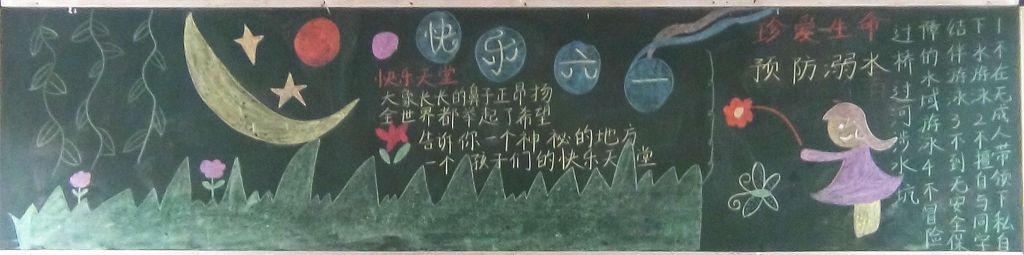 快乐六一
快乐天堂
大象长长的鼻子正昂扬
全世界都举起了希望
告诉你一个神秘的地方
一个孩子们的快乐天堂
珍爱生命
预防溺水
1不在无成人带领下私自
下水游泳2不擅自与同学
结伴游泳3不到无安全保
障的水域游泳4不冒险
过桥过河涉水坑